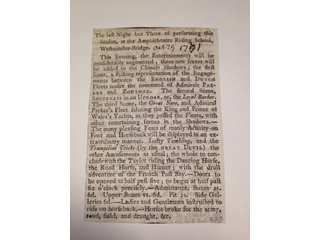 The last Night but Three of performing this
Season, at the Amphitheatre Riding School,
Westminster-Bridge. Oct 29 1781
This Evening, the Entertainments will be
considerably augmented; three new scenes will
be added to the Chinese Shadows; the first
scene, a striking representation of the Engage-
ments between the ENGLISH and DUTCH
Fleets under the command of Admirals PAR-
KER and ZOUTMAN. The Second Scene,
SPITTENIS in an UPROAR, or, the Loyal Barber.
The third Scene, the Great Nore, and Admiral
Parker's Fleet saluting the King and Prince of
Wales's Yachts, as they passed the Fleets, with
other entertaining forms in the Shadows.—
The many pleasing Feats of manly Activity on
Foot and Horseback will be displayed in an ex-
traordinary manner. Lofty Tumbling, and the
Trampoline Tricks (by the GREAT DEVIL) the
other Amusements as usual; the whole to con-
clude with the Taylor riding the Dancing Horse,
the Road Horse, and Hunter; with the droll
adventure of the French Post Boy.—Doors to
be opened at half past five; to begin at half past
six o'clock precisely.—Admittance, Boxes 2s.
6d. Upper Boxes Pit Side Gal-
leries 6d.—Ladies and Gentlemen instructed to
ride on horseback.—Horses broke for the army,
road, field, and draught, &c.